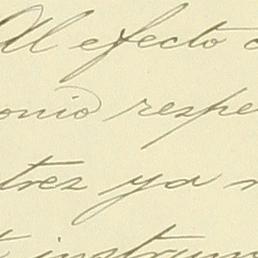 Al efecto c
onio respe
tres ya n
t instrum